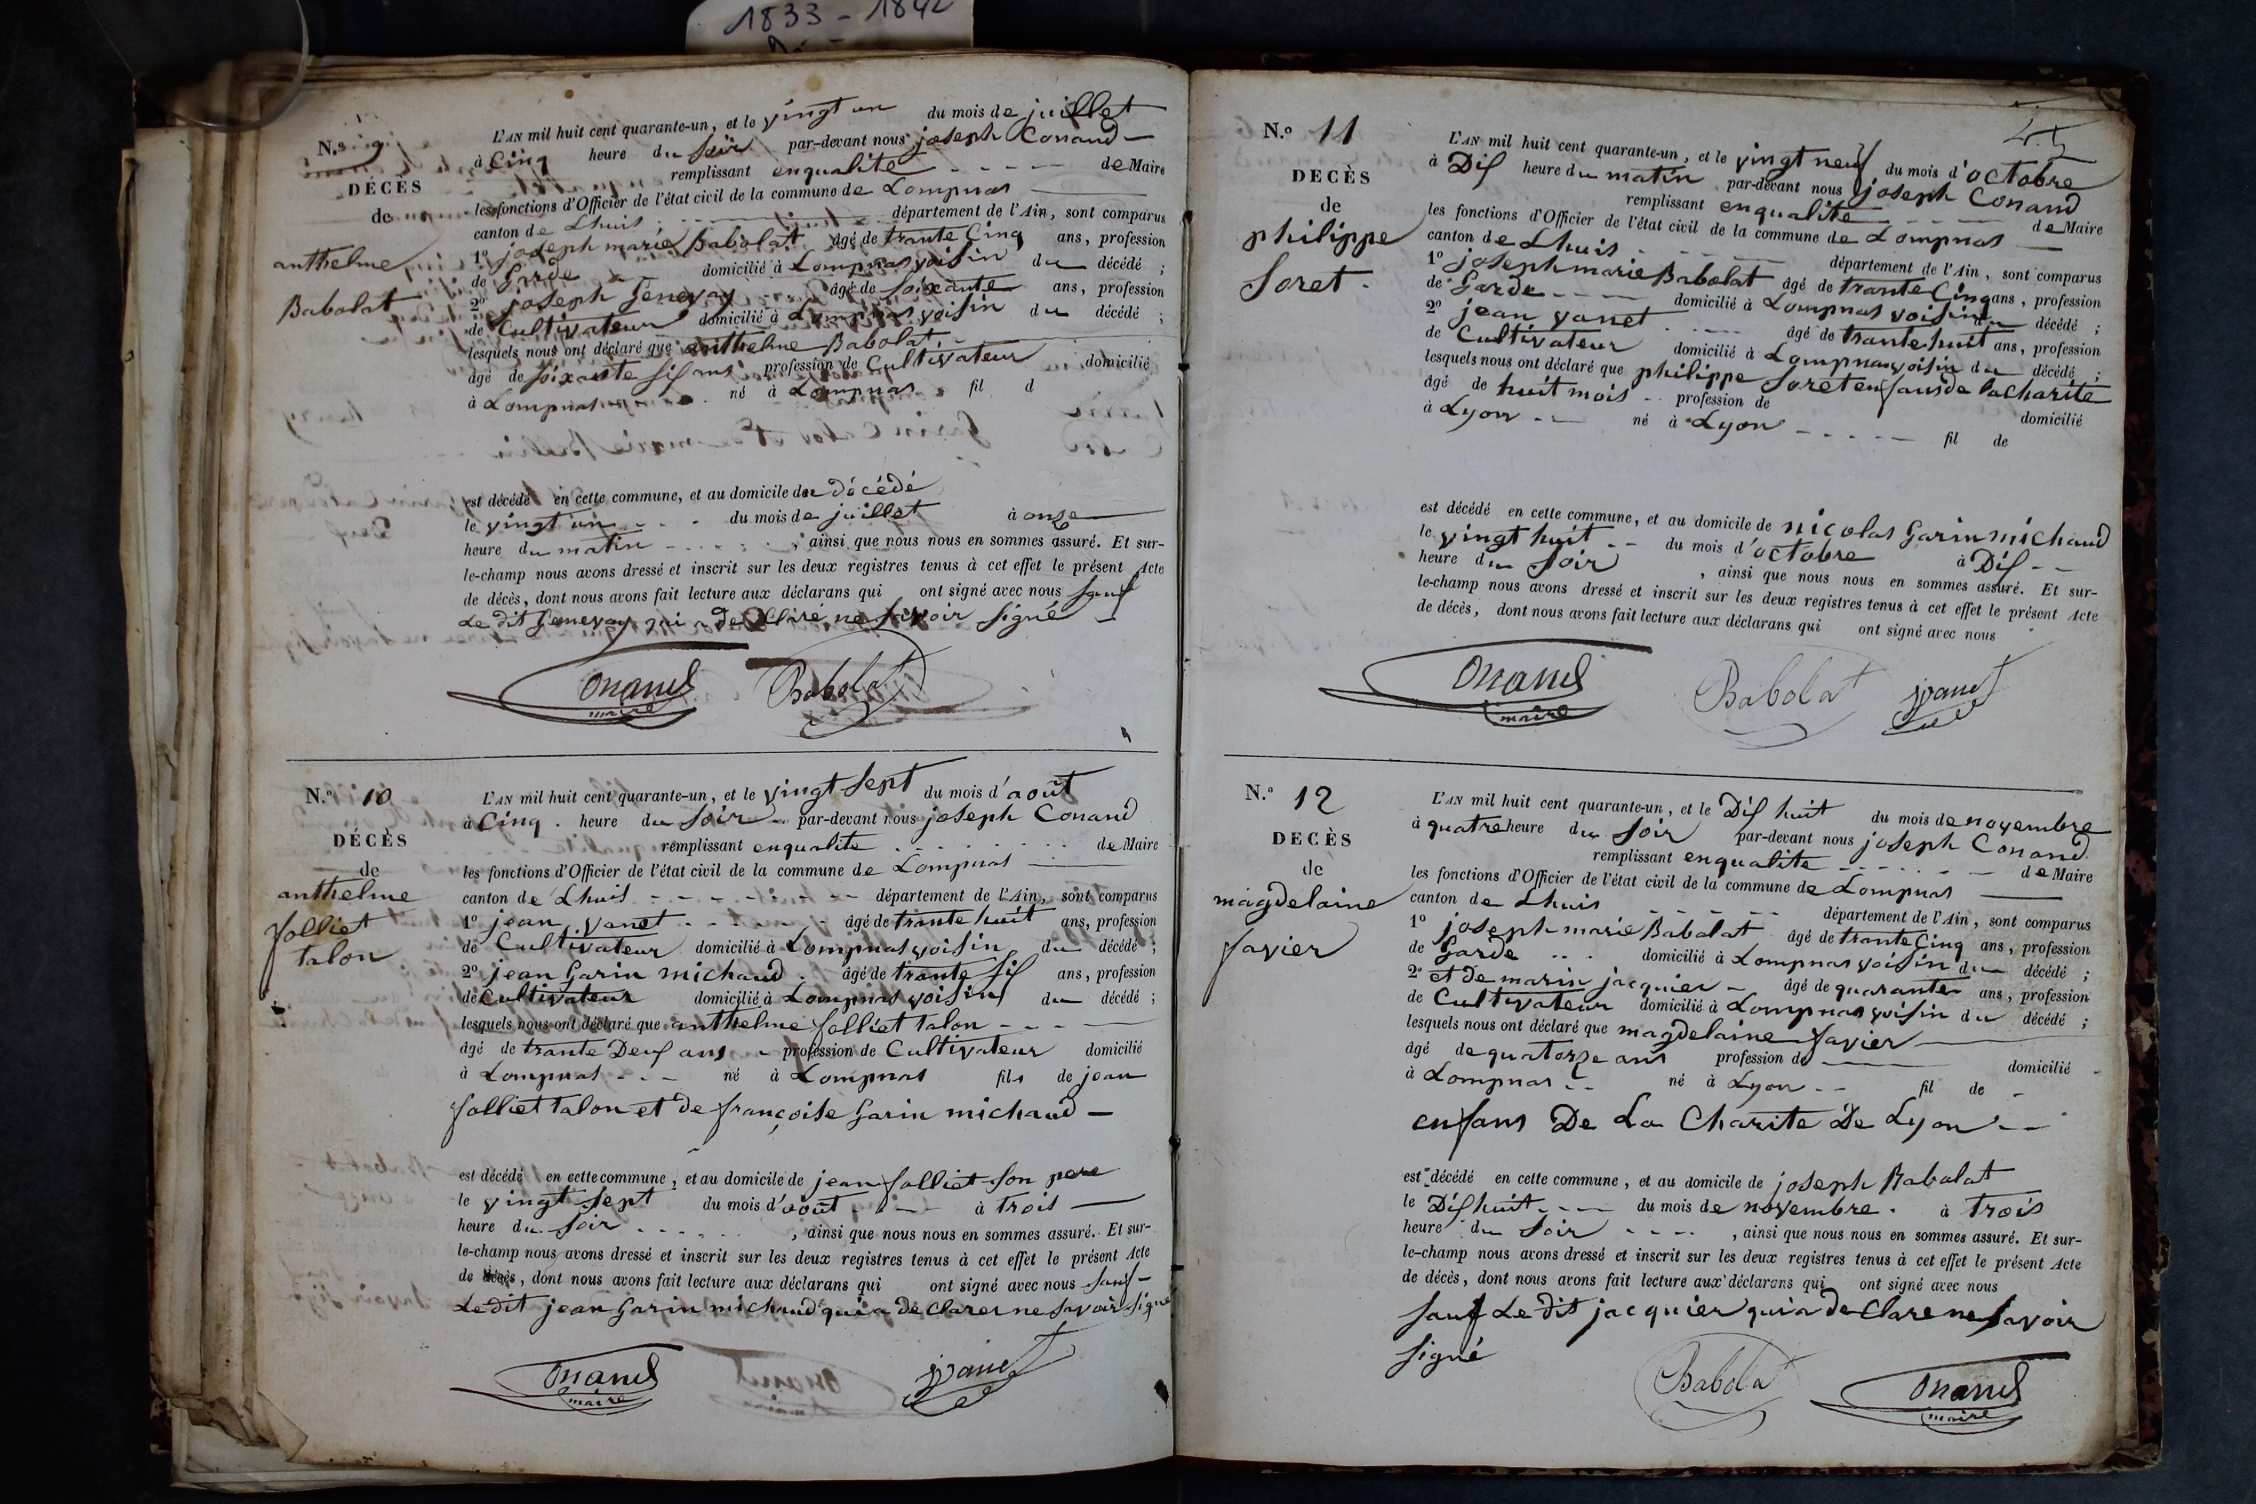 1833 - 1842
N.o 9
DÉCÈS
de
anthelme
Babolat
L'AN mil huit cent quarante-un, et le vingt un du mois de juillet
à Cinq heure du soir par-devant nous joseph Conand
remplissant enqualite de Maire
les fonctions d'Officier de l'état civil de la commune de Lompnas
canton de Lhuis département de l'Ain, sont comparus
1o joseph marie Babolat âgé de trante Cinq ans, profession
de Garde domicilié à Lompnas voisin du décédé ;
2o joseph Genevay âgé de soixante ans, profession
de Cultivateur domicilié à Lompnas voisin du décédé ;
lesquels nous ont déclaré que anthelme Babolat
âgé de soixante sis ans profession de Cultivateur domicilié
à Lompnas né à Lompnas fil d
est décédé en cette commune, et au domicile du décédé
le vingt un du mois de juillet à onze
heure du matin , ainsi que nous nous en sommes assuré. Et sur-
le-champ nous avons dressé et inscrit sur les deux registres tenus à cet effet le présent Acte
de décès, dont nous avons fait lecture aux déclarans qui ont signé avec nous sauf
Le dit Genevay qui a de Claré ne savoir signé
Conand Babolat
maire
N.o 10
DÉCÈS
de
anthelme
folliet
talon
L'AN mil huit cent quarante-un, et le vingt sept du mois d'août
à Cinq heure du soir par-devant nous joseph Conand
remplissant enqualite de Maire
les fonctions d'Officier de l'état civil de la commune de Lompnas
canton de Lhuis département de l'Ain, sont comparus
1o jean vanet âgé de trante huit ans, profession
de Cultivateur domicilié à Lompnas voisin du décédé ;
2o jean Garin michaud âgé de trante sis ans, profession
de Cultivateur domicilié à Lompnas voisin du décédé ;
lesquels nous ont déclaré que anthelme folliet talon
âgé de trante Deus ans profession de Cultivateur domicilié
à Lompnas né à Lompnas fils de jean
folliet talon et de françoise Garin michaud
est décédé en cette commune, et au domicile de jean folliet son pere
le vingt sept du mois d'août à trois
heure du soir , ainsi que nous nous en sommes assuré. Et sur-
le-champ nous avons dressé et inscrit sur les deux registres tenus à cet effet le présent Acte
de décès, dont nous avons fait lecture aux déclarans qui ont signé avec nous sauf
Le dit jean Garin michaud qui a de Clarer ne savoir signé
Conand jvanet
maire
45
N.o 11
DECÈS
de
philippe
Soret
L'AN mil huit cent quarante-un, et le vingt neuf du mois d'octobre
à Dis heure du matin par-devant nous joseph Conand
remplissant enqualite de Maire
les fonctions d'Officier de l'état civil de la commune de Lompnas
canton de Lhuis département de l'Ain, sont comparus
1o joseph marie Babolat âgé de trante Cinq ans, profession
de Garde domicilié à Lompnas voisin du décédé ;
2o jean vanet âgé de trante huit ans, profession
de Cultivateur domicilié à Lompnas voisin du décédé ;
lesquels nous ont déclaré que philippe Soret enfans de la Charite
âgé de huit mois profession de domicilié
à Lyon né à Lyon fil de
est décédé en cette commune, et au domicile de nicolas Garin michaud
le vingt huit du mois d'octobre à Dis
heure du soir , ainsi que nous nous en sommes assuré. Et sur-
le-champ nous avons dressé et inscrit sur les deux registres tenus à cet effet le présent Acte
de décès, dont nous avons fait lecture aux déclarans qui ont signé avec nous
Conand Babolat jvanet
maire
N.o 12
DECÈS
de
magdelaine
favier
L'AN mil huit cent quarante-un, et le Dis huit du mois de novembre
à quatre heure du soir par-devant nous joseph Conand
remplissant enqualite de Maire
les fonctions d'Officier de l'état civil de la commune de Lompnas
canton de Lhuis département de l'Ain, sont comparus
1o joseph marie Babolat âgé de trante Cinq ans, profession
de Garde domicilié à Lompnas voisin du décédé ;
2o et de marin jacquier âgé de quarante ans, profession
de Cultivateur domicilié à Lompnas voisin du décédé ;
lesquels nous ont déclaré que magdelaine favier
âgé de quatorze ans profession de domicilié
à Lompnas né à Lyon fil de
enfans De La Charite De Lyon
est décédé en cette commune, et au domicile de joseph Babolat
le Dis huit du mois de novembre à trois
heure du soir , ainsi que nous nous en sommes assuré. Et sur-
le-champ nous avons dressé et inscrit sur les deux registres tenus à cet effet le présent Acte
de décès, dont nous avons fait lecture aux déclarans qui ont signé avec nous
sauf Le dit jacquier qui a de Clare ne savoir
signé
Babolat Conand
maire